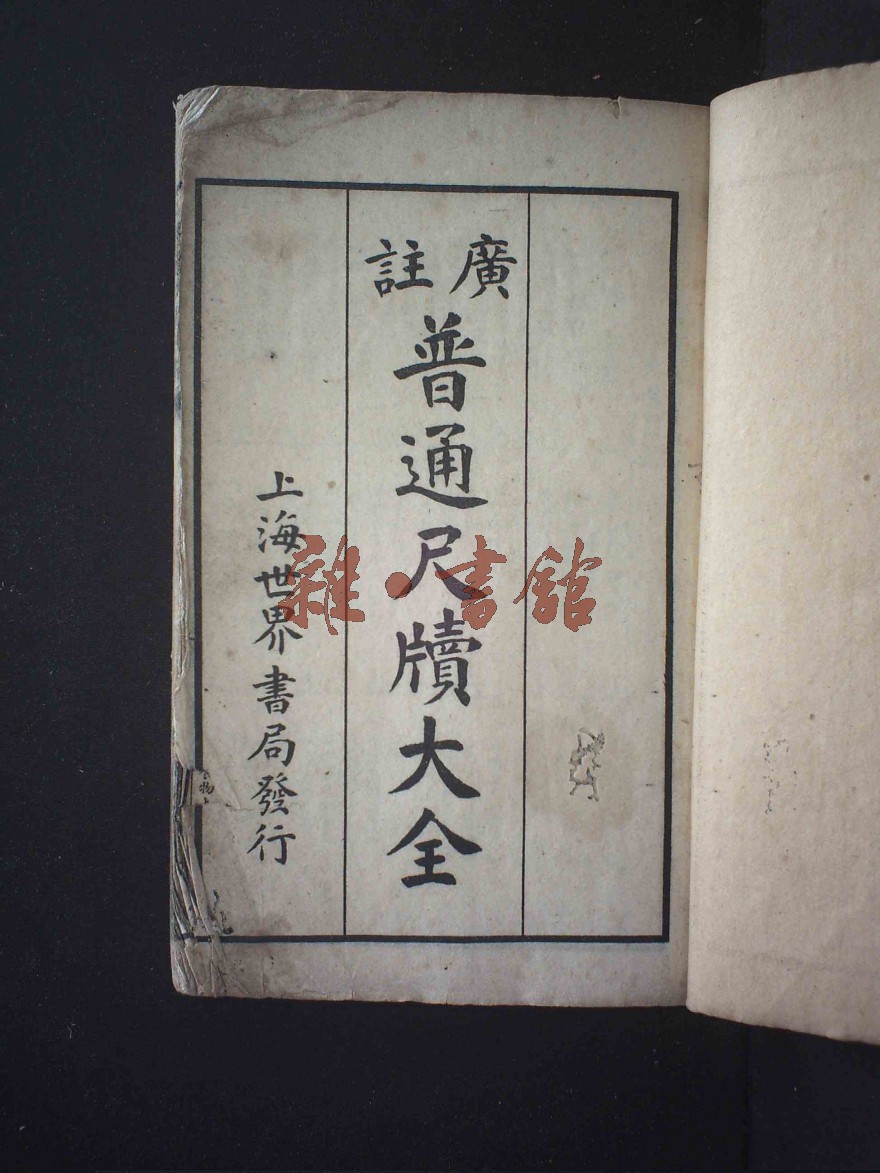 廣註
普通尺牘大全
上海世界書局發行
雜·書館